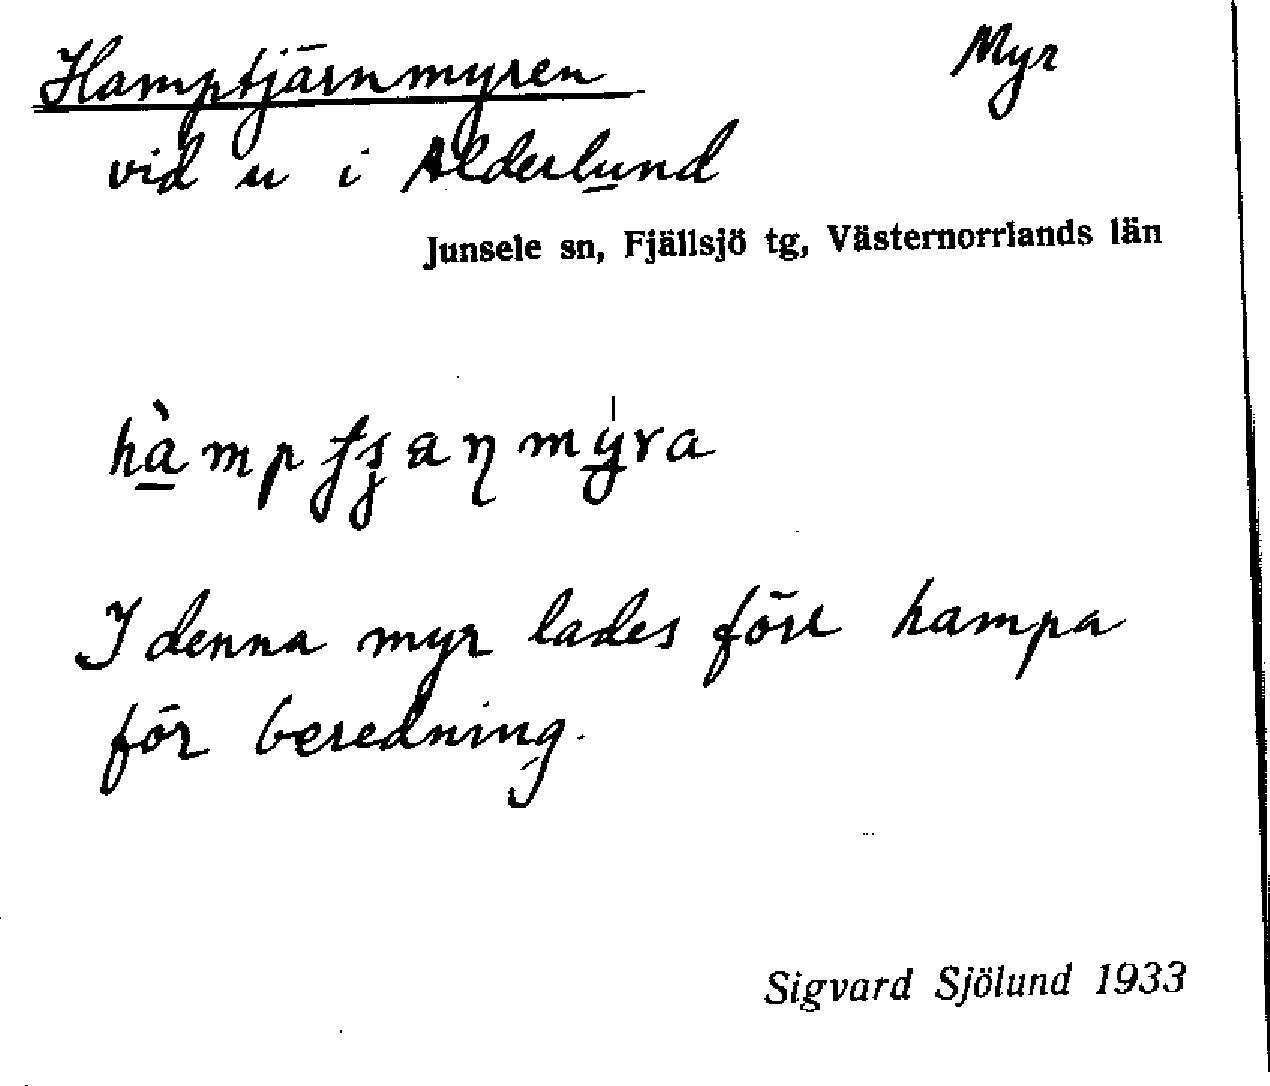 Hamptjärnmyren Myr
vid u i Alderlund
Junsele sn, Fjällsjö tg, Västernorrlands län
I denna myr lades förr hampa
för beredning.
Sigvard Sjölund 1933